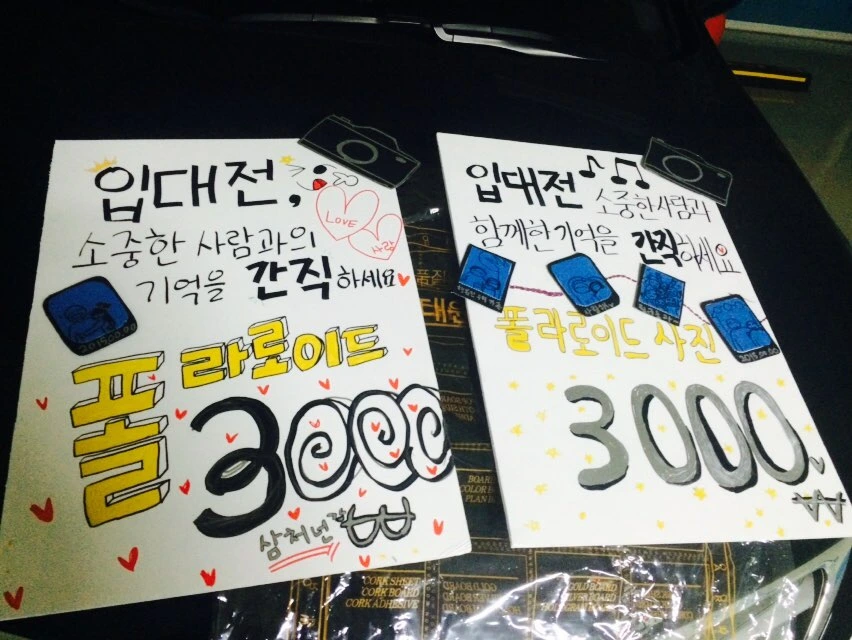 입대전,
LOVE
사랑
소중한 사람과의
기억을 간직하세요
2015.00.00
폴라로이드
3000
삼천넌걸
₩
입대전 소중한사람과
함께한 기억을 간직하세요
폴라로이드 사진
2015.00.00
3000
₩
CORK SHEET
CORK BOARD
CORK ADHESIVE